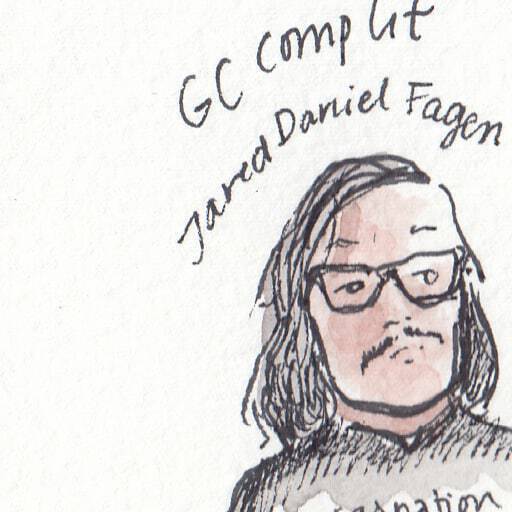 GC Comp Lit
Jared Daniel Fagen